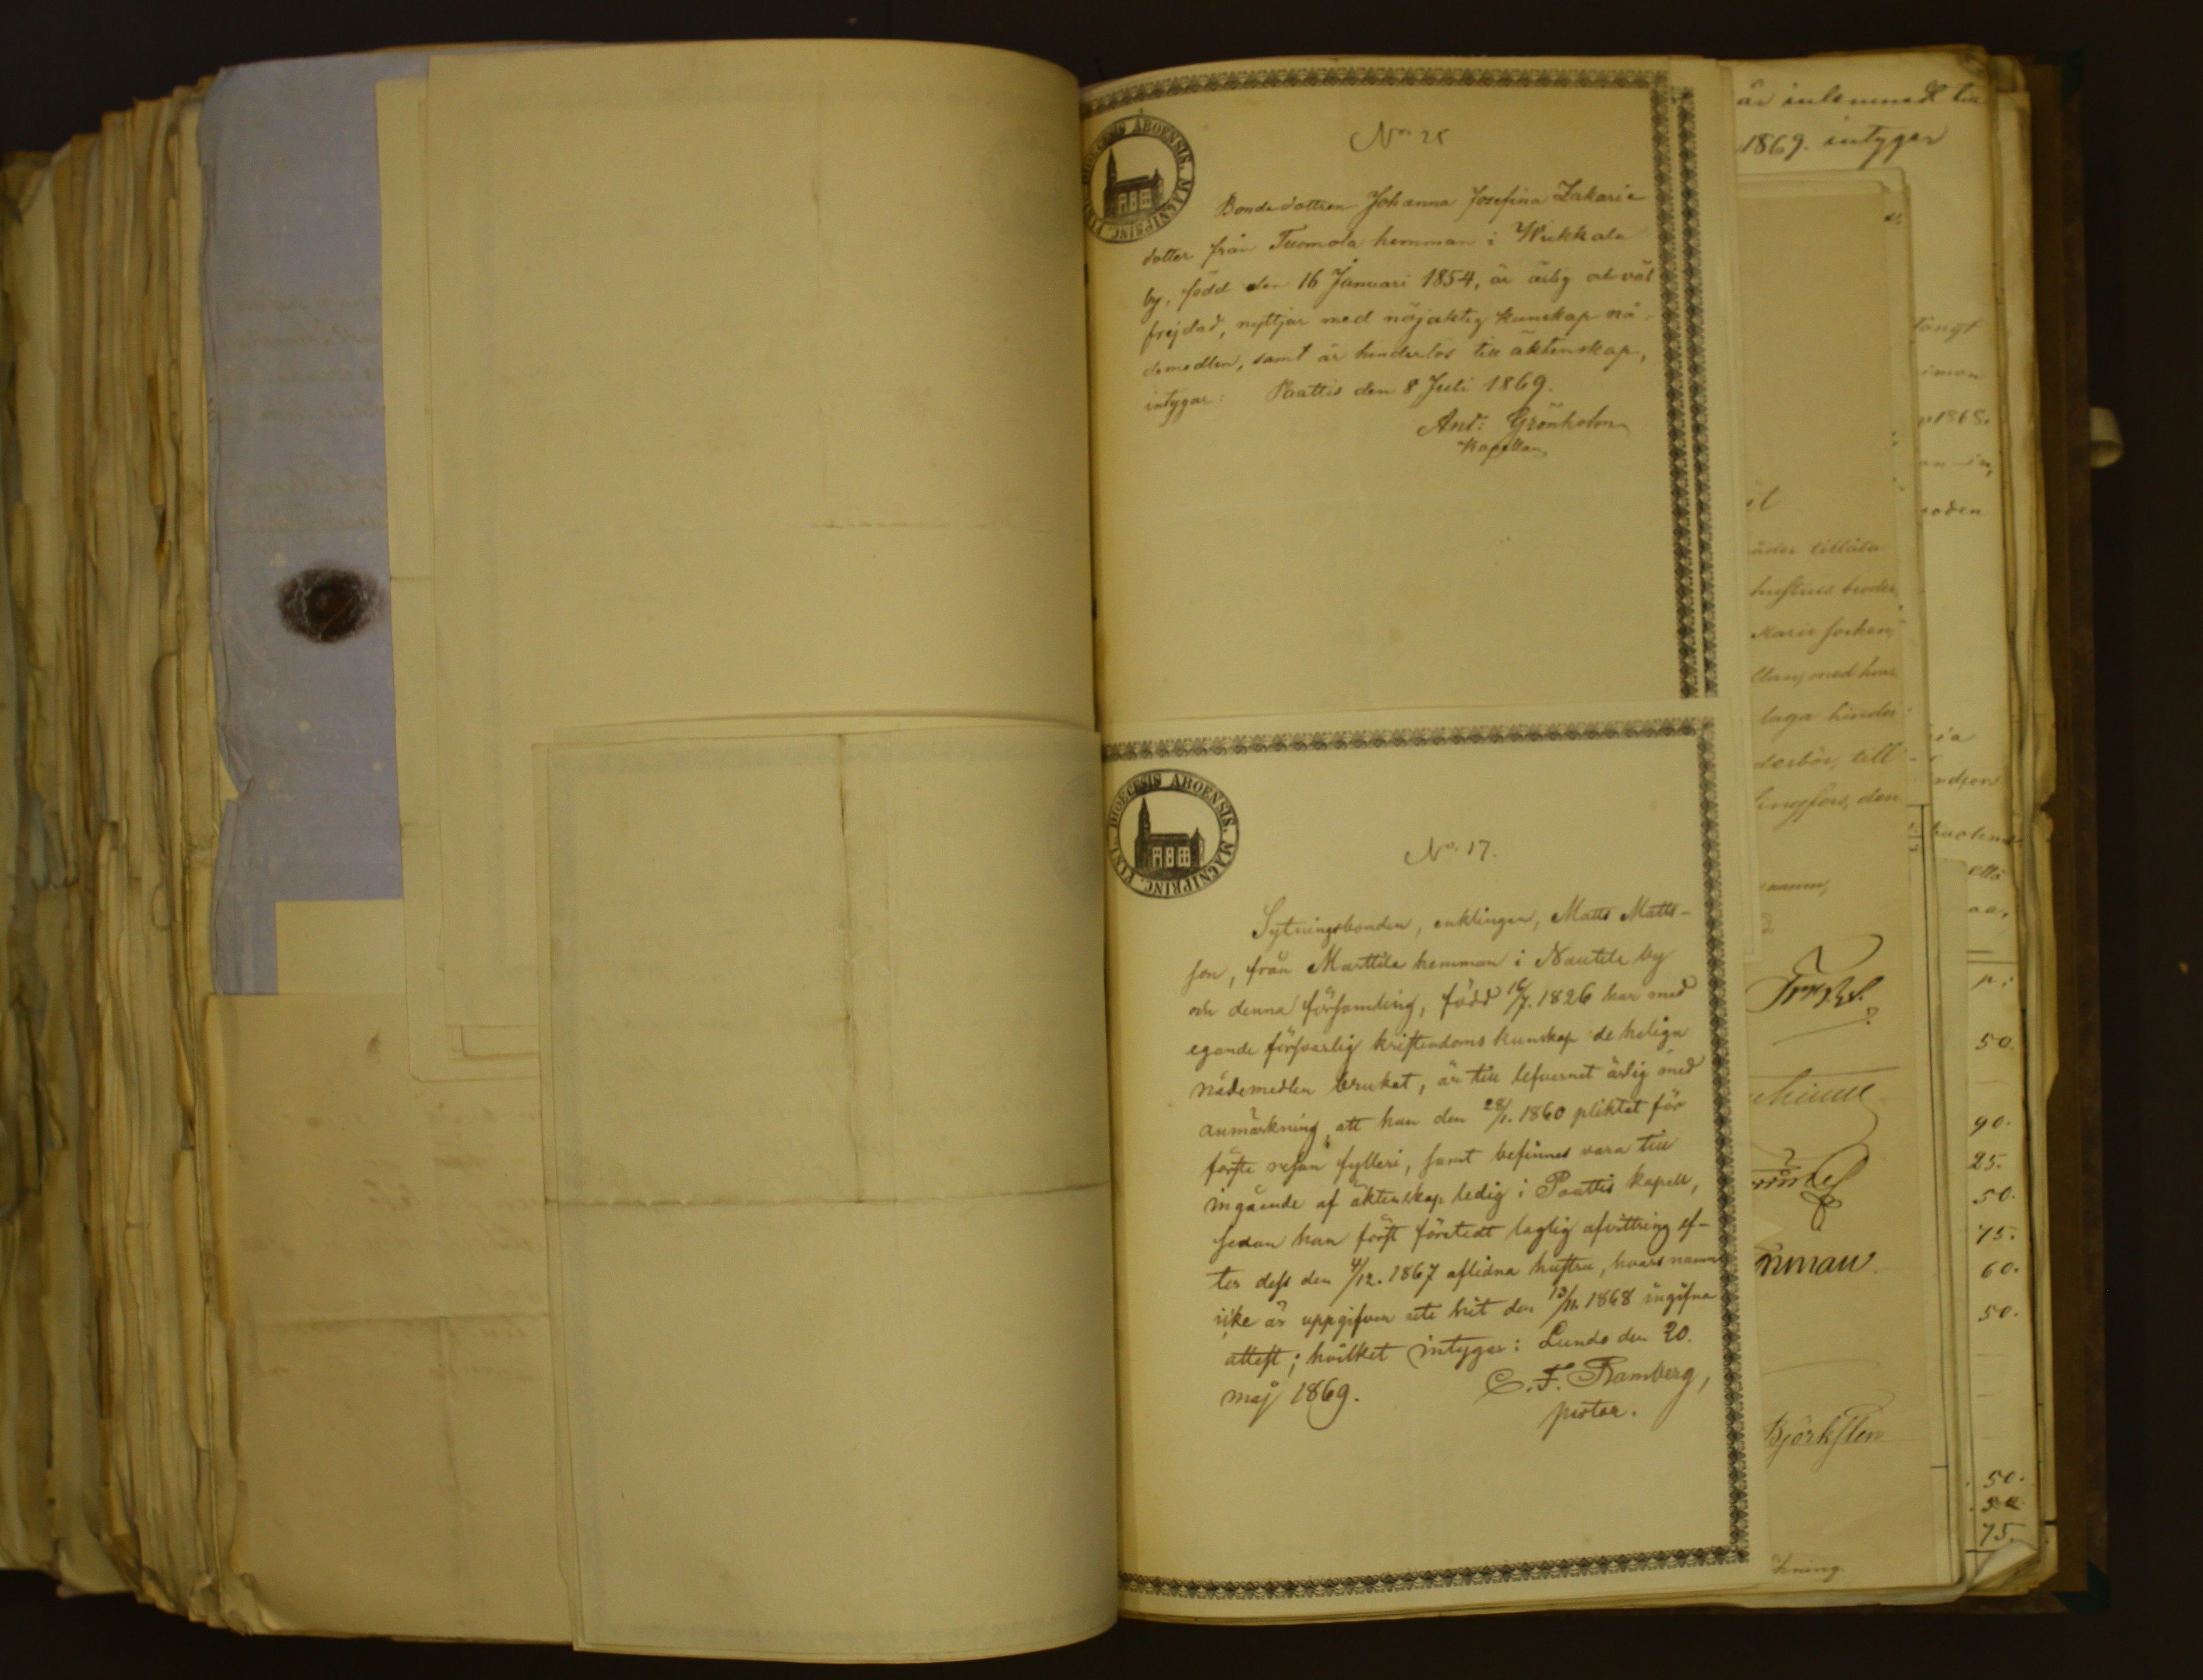 DIOECESIS ABOENSIS. MAGNI PRINC. FINL.
No 25
Bondedottren Johanna Josefina Zakarie
dotter från Tuomola hemman i Wukkala
by, född den 16 Januari 1854, är ärlig och väl
frejdad, nyttjar med nöjaktig kunskap nå-
demedlen, samt är hinderlös till äktenskap,
intygar: Paattis den 8 Juli 1869.
And: Grönholm
Kapellan
DIOECESIS ABOENSIS. MAGNI PRINC. FINL.
No 17.
Sytningsbonden, enklingen, Matts Matts-
son, från Marttila hemman i Nautela by
och denna församling, född 16/7. 1826 har med
egande försvarlig kristendoms kunskap de heliga
nådemedlen brukat, är till lefvernet ärlig med
anmärkning, att han den 28/1. 1860 pliktat för
förste resan fylleri, samt befinnes vara till
ingående af äktenskap ledig i Paattis kapell,
sedan han först företedt laglig afvittring ef-
ter dess den 4/12. 1867 aflidna hustru, hvars namn
icke är uppgifven uti hit den 13/11. 1868 ingifna
attest; hvilket intygar: Lundo den 20.
maj 1869.
C. F. Ramberg,
pastor.
är inlemnadt till
1869. intygar
1868.
tillåta
hustrus broder
med hvar
laga hinder
till
den
Björksten
50.
90.
25.
50.
75.
60.
50.
50.
75.